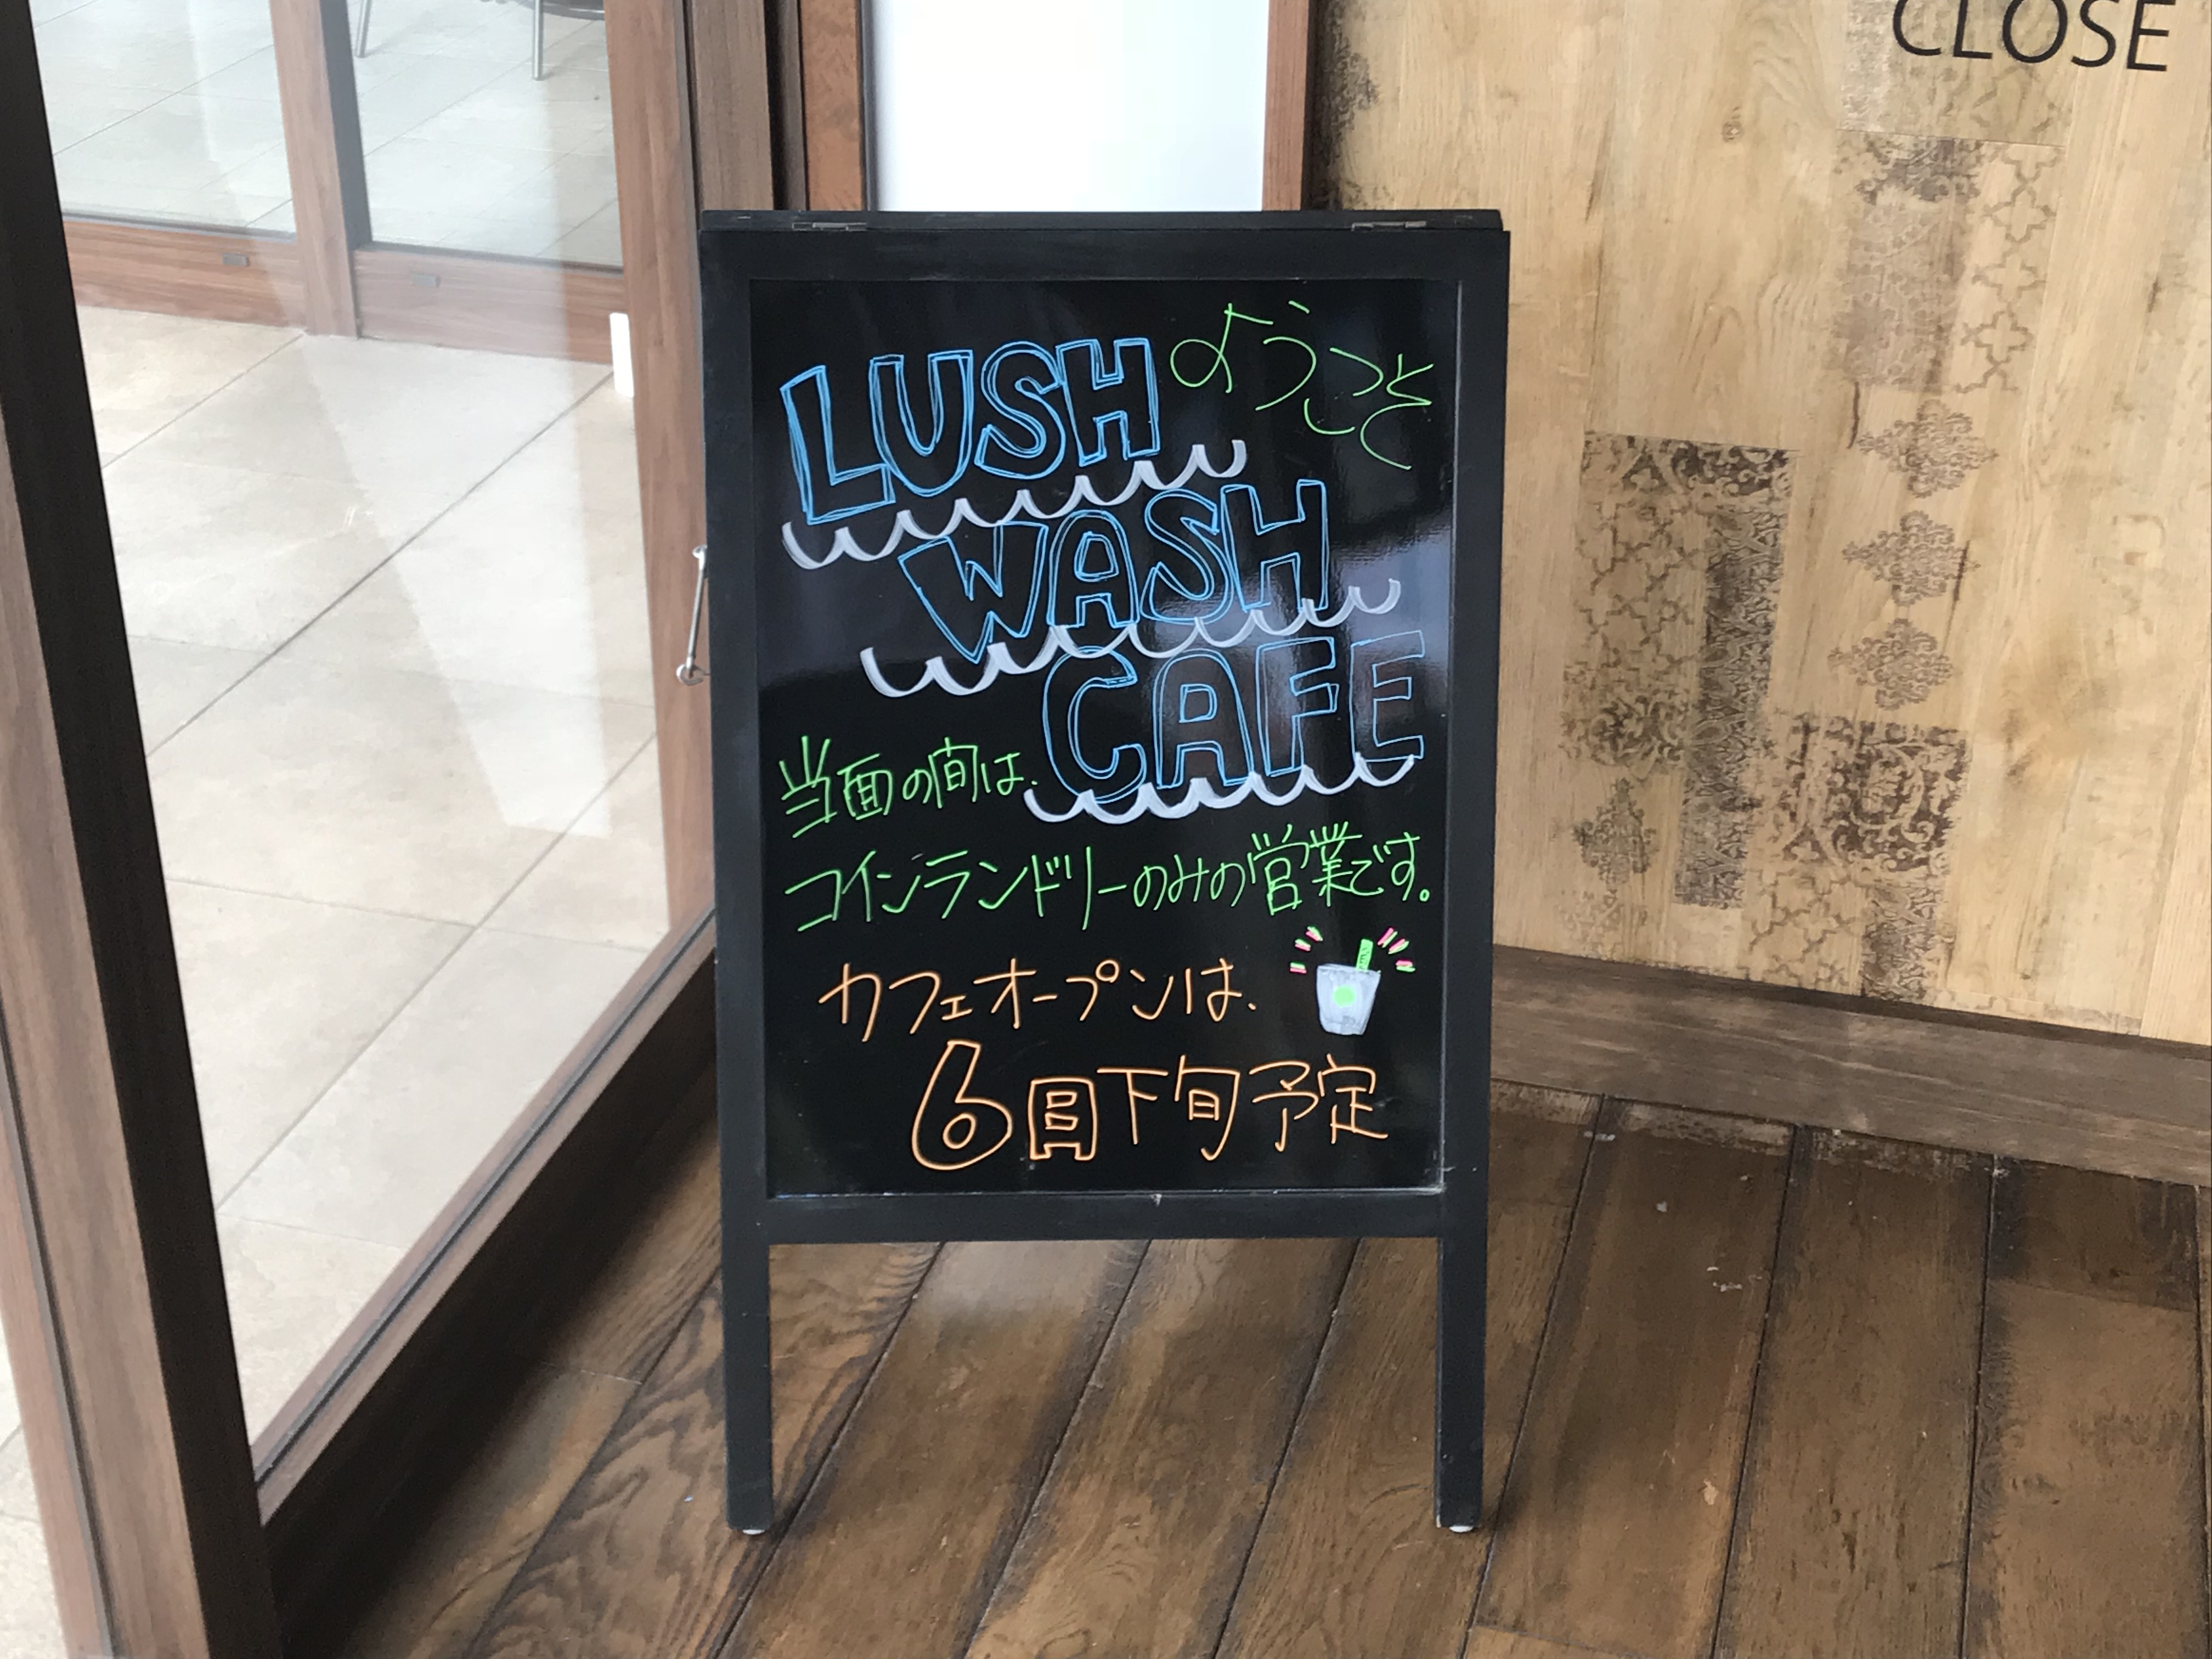 CLOSE
ようこそ
LUSH
WASH
CAFE
当面の間は、
コインランドリーのみの営業です。
カフェオープンは、
6月下旬予定